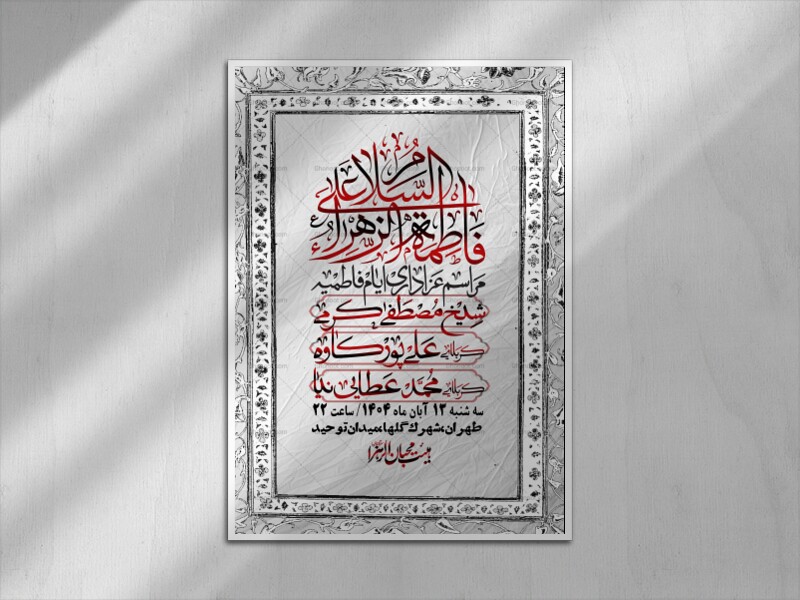 السلام علی
فاطمة الزهراء
مراسم عزاداری ایام فاطمیه
شیخ مصطفی کرمی
کربلایی علی پورکاوه
کربلایی محمد عطایی نیا
سه شنبه ۱۳ آبان ماه ۱۴۰۴/ ساعت ۲۲
طهران،شهرک گلها،میدان توحید
هیئت محبان الزهرا